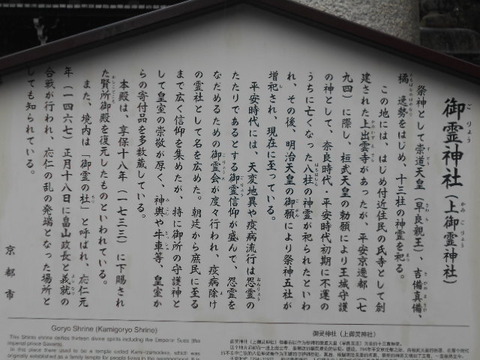 御霊神社（上御霊神社）
祭神として崇道天皇（早良親王）、吉備真備、
橘逸勢をはじめ、十三社の神霊を祀る。
この地には、はじめ付近住民の氏寺として創
建された上出雲寺があったが、平安京遷都（七
九四）に際し、桓武天皇の勅願により王城守護
の神として、奈良時代・平安時代初期に不運の
うちに亡くなった八柱の神霊が祀られたといわ
れ、その後、明治天皇の御願により祭神五社が
増祀され、現在に至っている。
平安時代には、天変地異や疫病流行は怨霊の
たたりであるとする御霊信仰が盛んで、怨霊を
なだめるための御霊会が度々行われ、疫病除け
の霊社として名を広めた。朝廷から庶民に至る
まで広く信仰を集めたが、特に御所の守護神と
して皇室の崇敬が厚く、神輿や牛車等、皇室か
らの寄付品を多数蔵している。
本殿は、享保十八年（一七三三）に下賜され
た賢所御殿を復元したものといわれている。
また、境内は「御霊の杜」と呼ばれ、応仁元
年（一四六七）正月十八日に畠山政長と義就の
合戦が行われ、応仁の乱の発端となった場所と
しても知られている。
京都市
Goryo Shrine (Kamigoryo Shrine)
This Shinto shrine deifies thirteen divine spirits including the Emperor Sudo (the
御灵神社（上御灵神社）